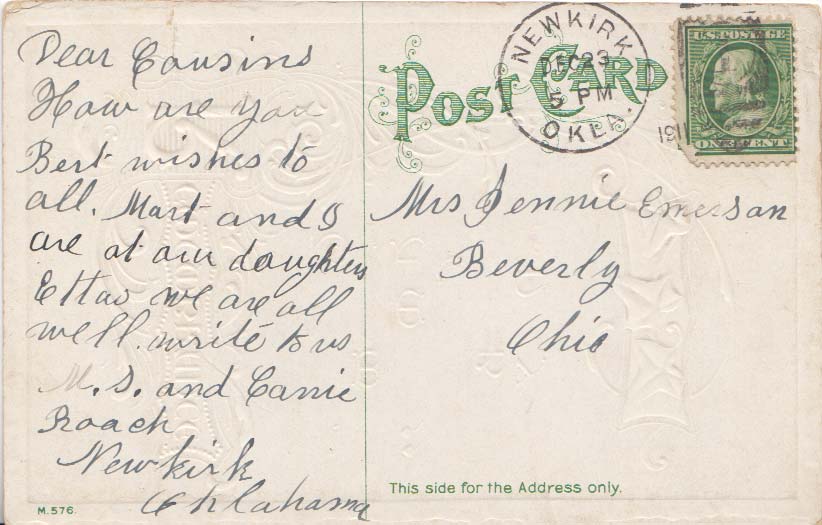 Dear Cousins
How are you
Best wishes to
all. Mart and I
are at our daughters
Ettas we are all
well. write to us
M. S. and Carrie
Roach
Newkirk
Oklahoma
M. 576.
POST CARD
NEWKIRK
DEC 23
5 PM
OKLA.
1911
U.S. POSTAGE
ONE CENT
Mrs Jennie Emerson
Beverly
Ohio
This side for the Address only.